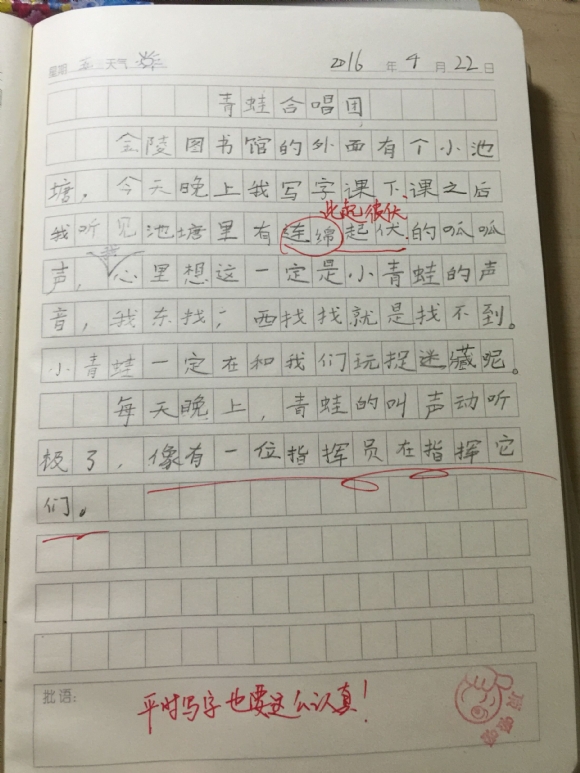 星期 五 天气 2016 年 4 月 22 日
青蛙合唱团
金陵图书馆的外面有个小池
塘，今天晚上我写字课下课之后
此起彼伏
我听见池塘里有连绵起伏的呱呱
我
声，心里想这一定是小青蛙的声
音，我东找，西找找就是找不到。
小青蛙一定在和我们玩捉迷藏呢。
每天晚上，青蛙的叫声动听
极了，像有一位指挥员在指挥它
们。
批语：
平时写字也要这么认真！